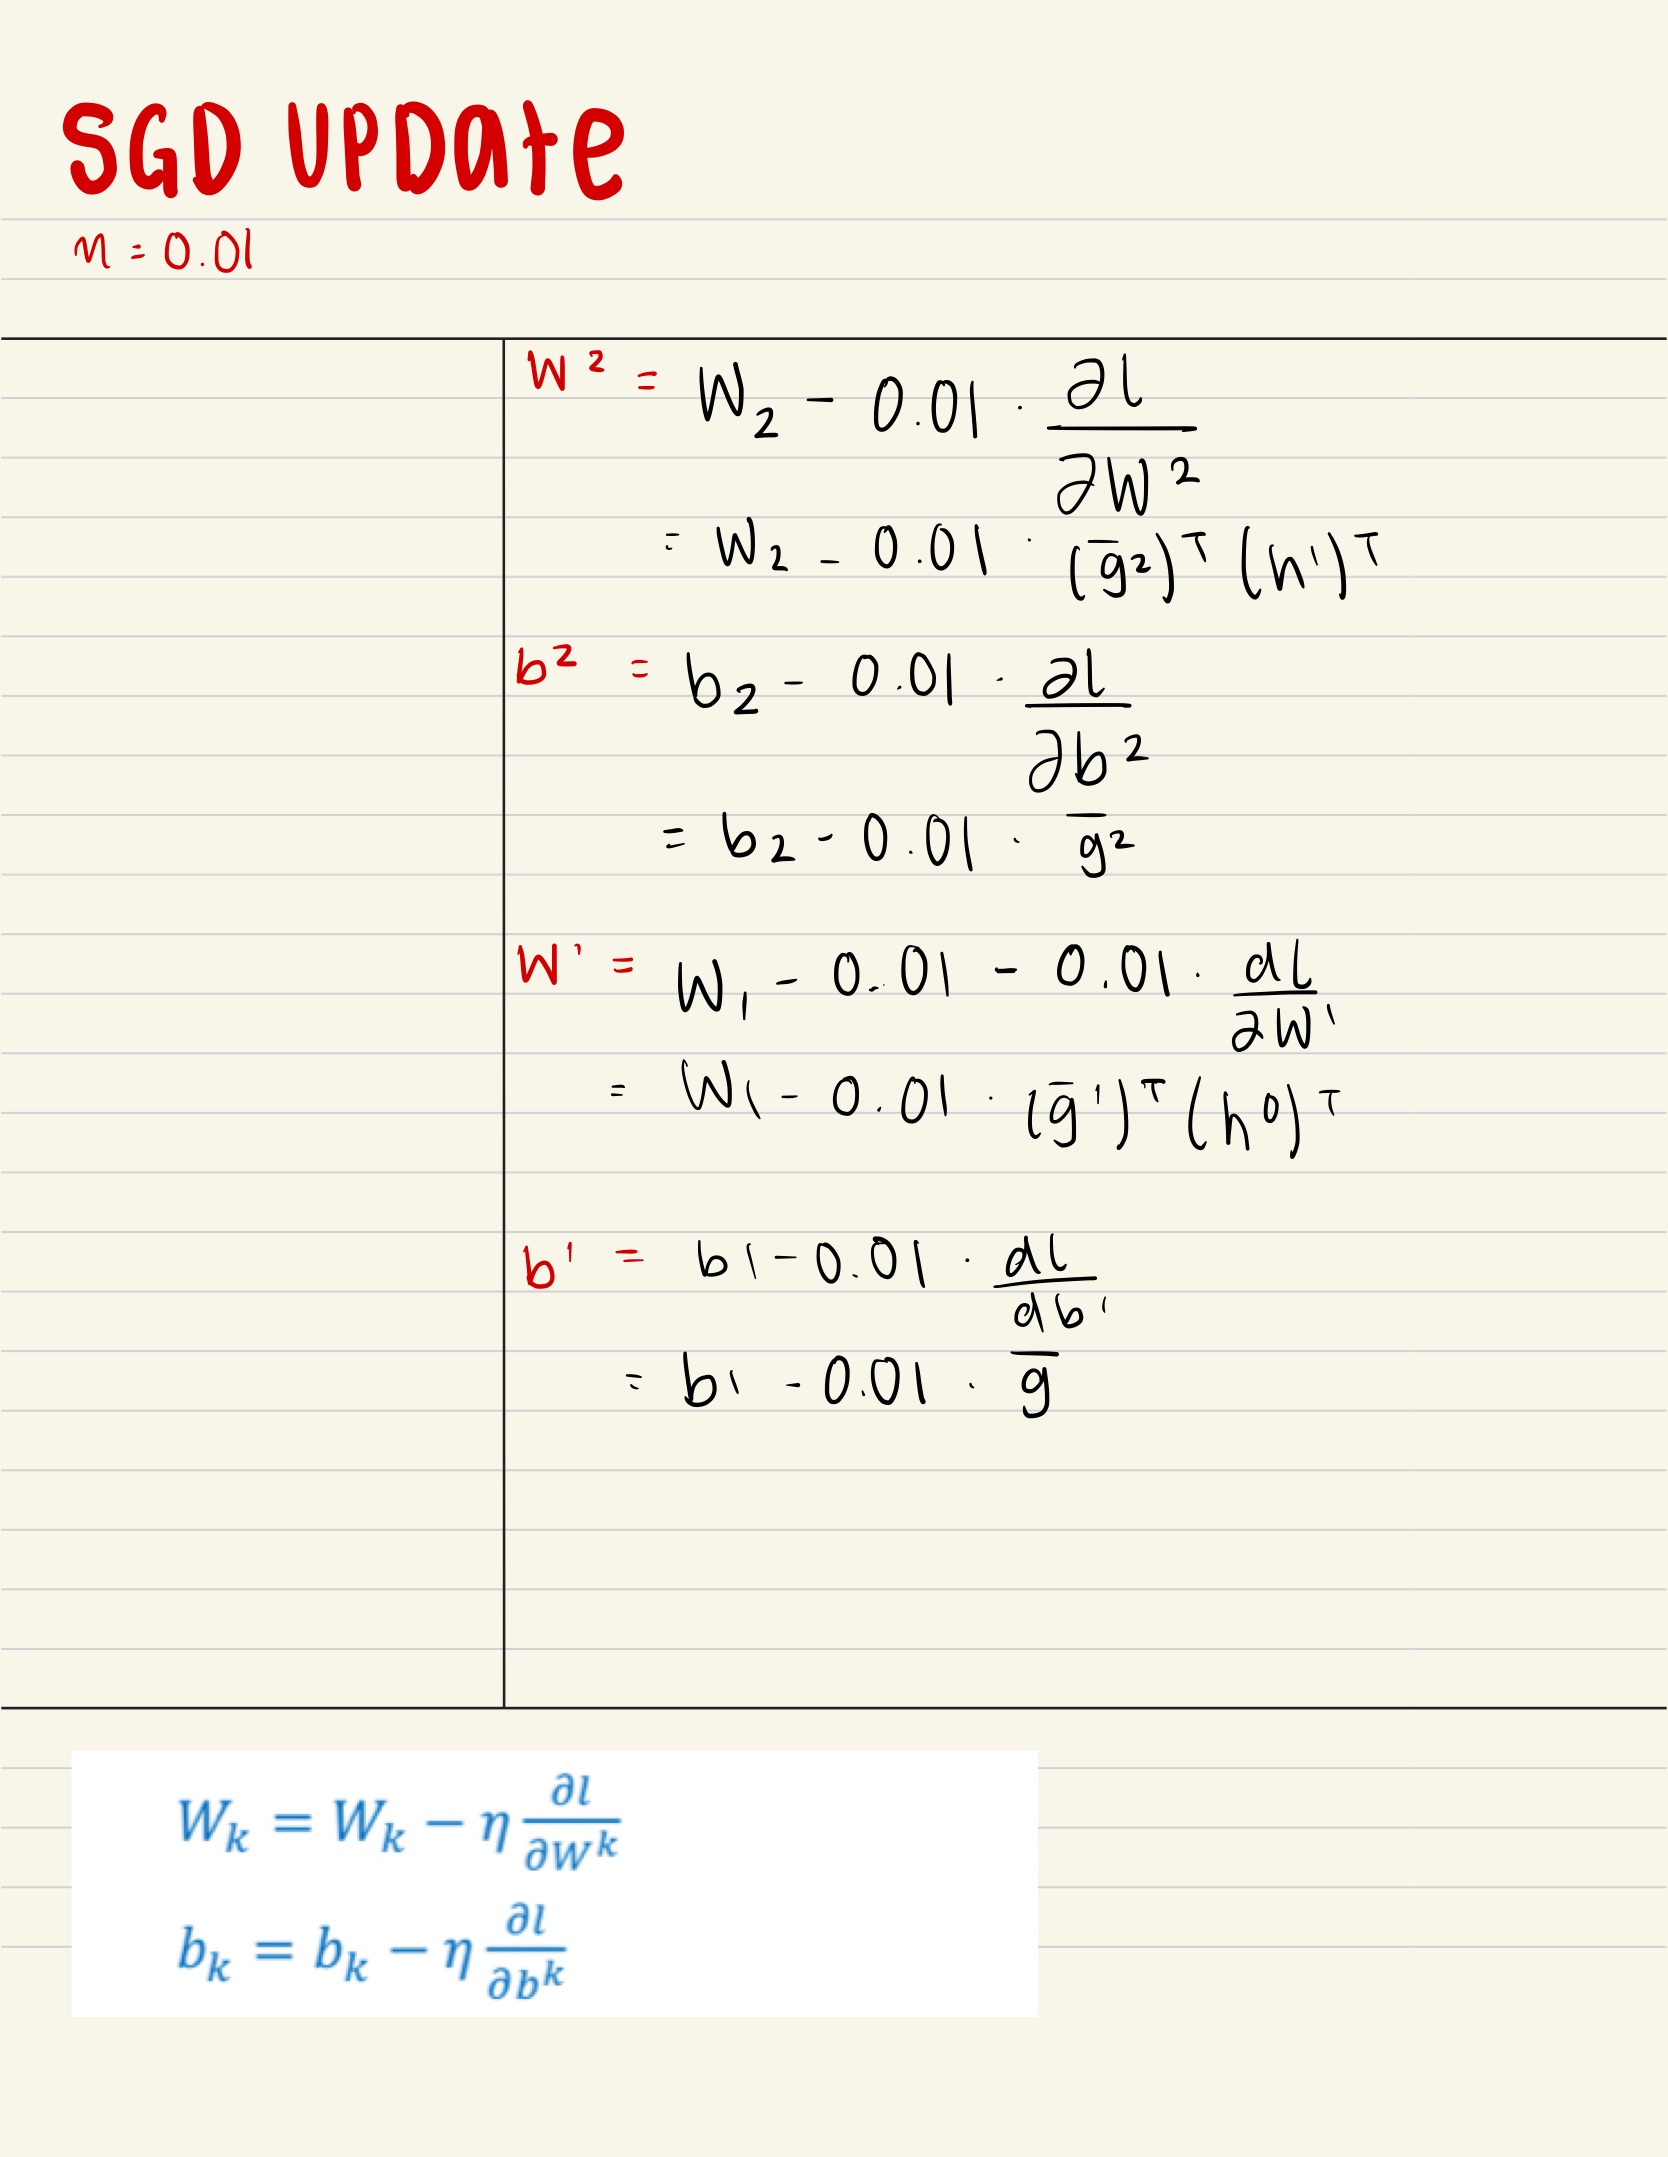 SGD UPDate
n = 0.01
W² = W₂ - 0.01 · ∂l/∂W²
= W₂ - 0.01 · (g̅²)ᵀ (h¹)ᵀ
b² = b₂ - 0.01 · ∂l/∂b²
= b₂ - 0.01 · g̅²
W¹ = W₁ - 0.01 - 0.01 · dl/∂W¹
= W₁ - 0.01 · (g̅¹)ᵀ (h⁰)ᵀ
b¹ = b₁ - 0.01 · dl/db¹
= b₁ - 0.01 · g̅
Wₖ = Wₖ − η ∂l/∂Wᵏ
bₖ = bₖ − η ∂l/∂bᵏ